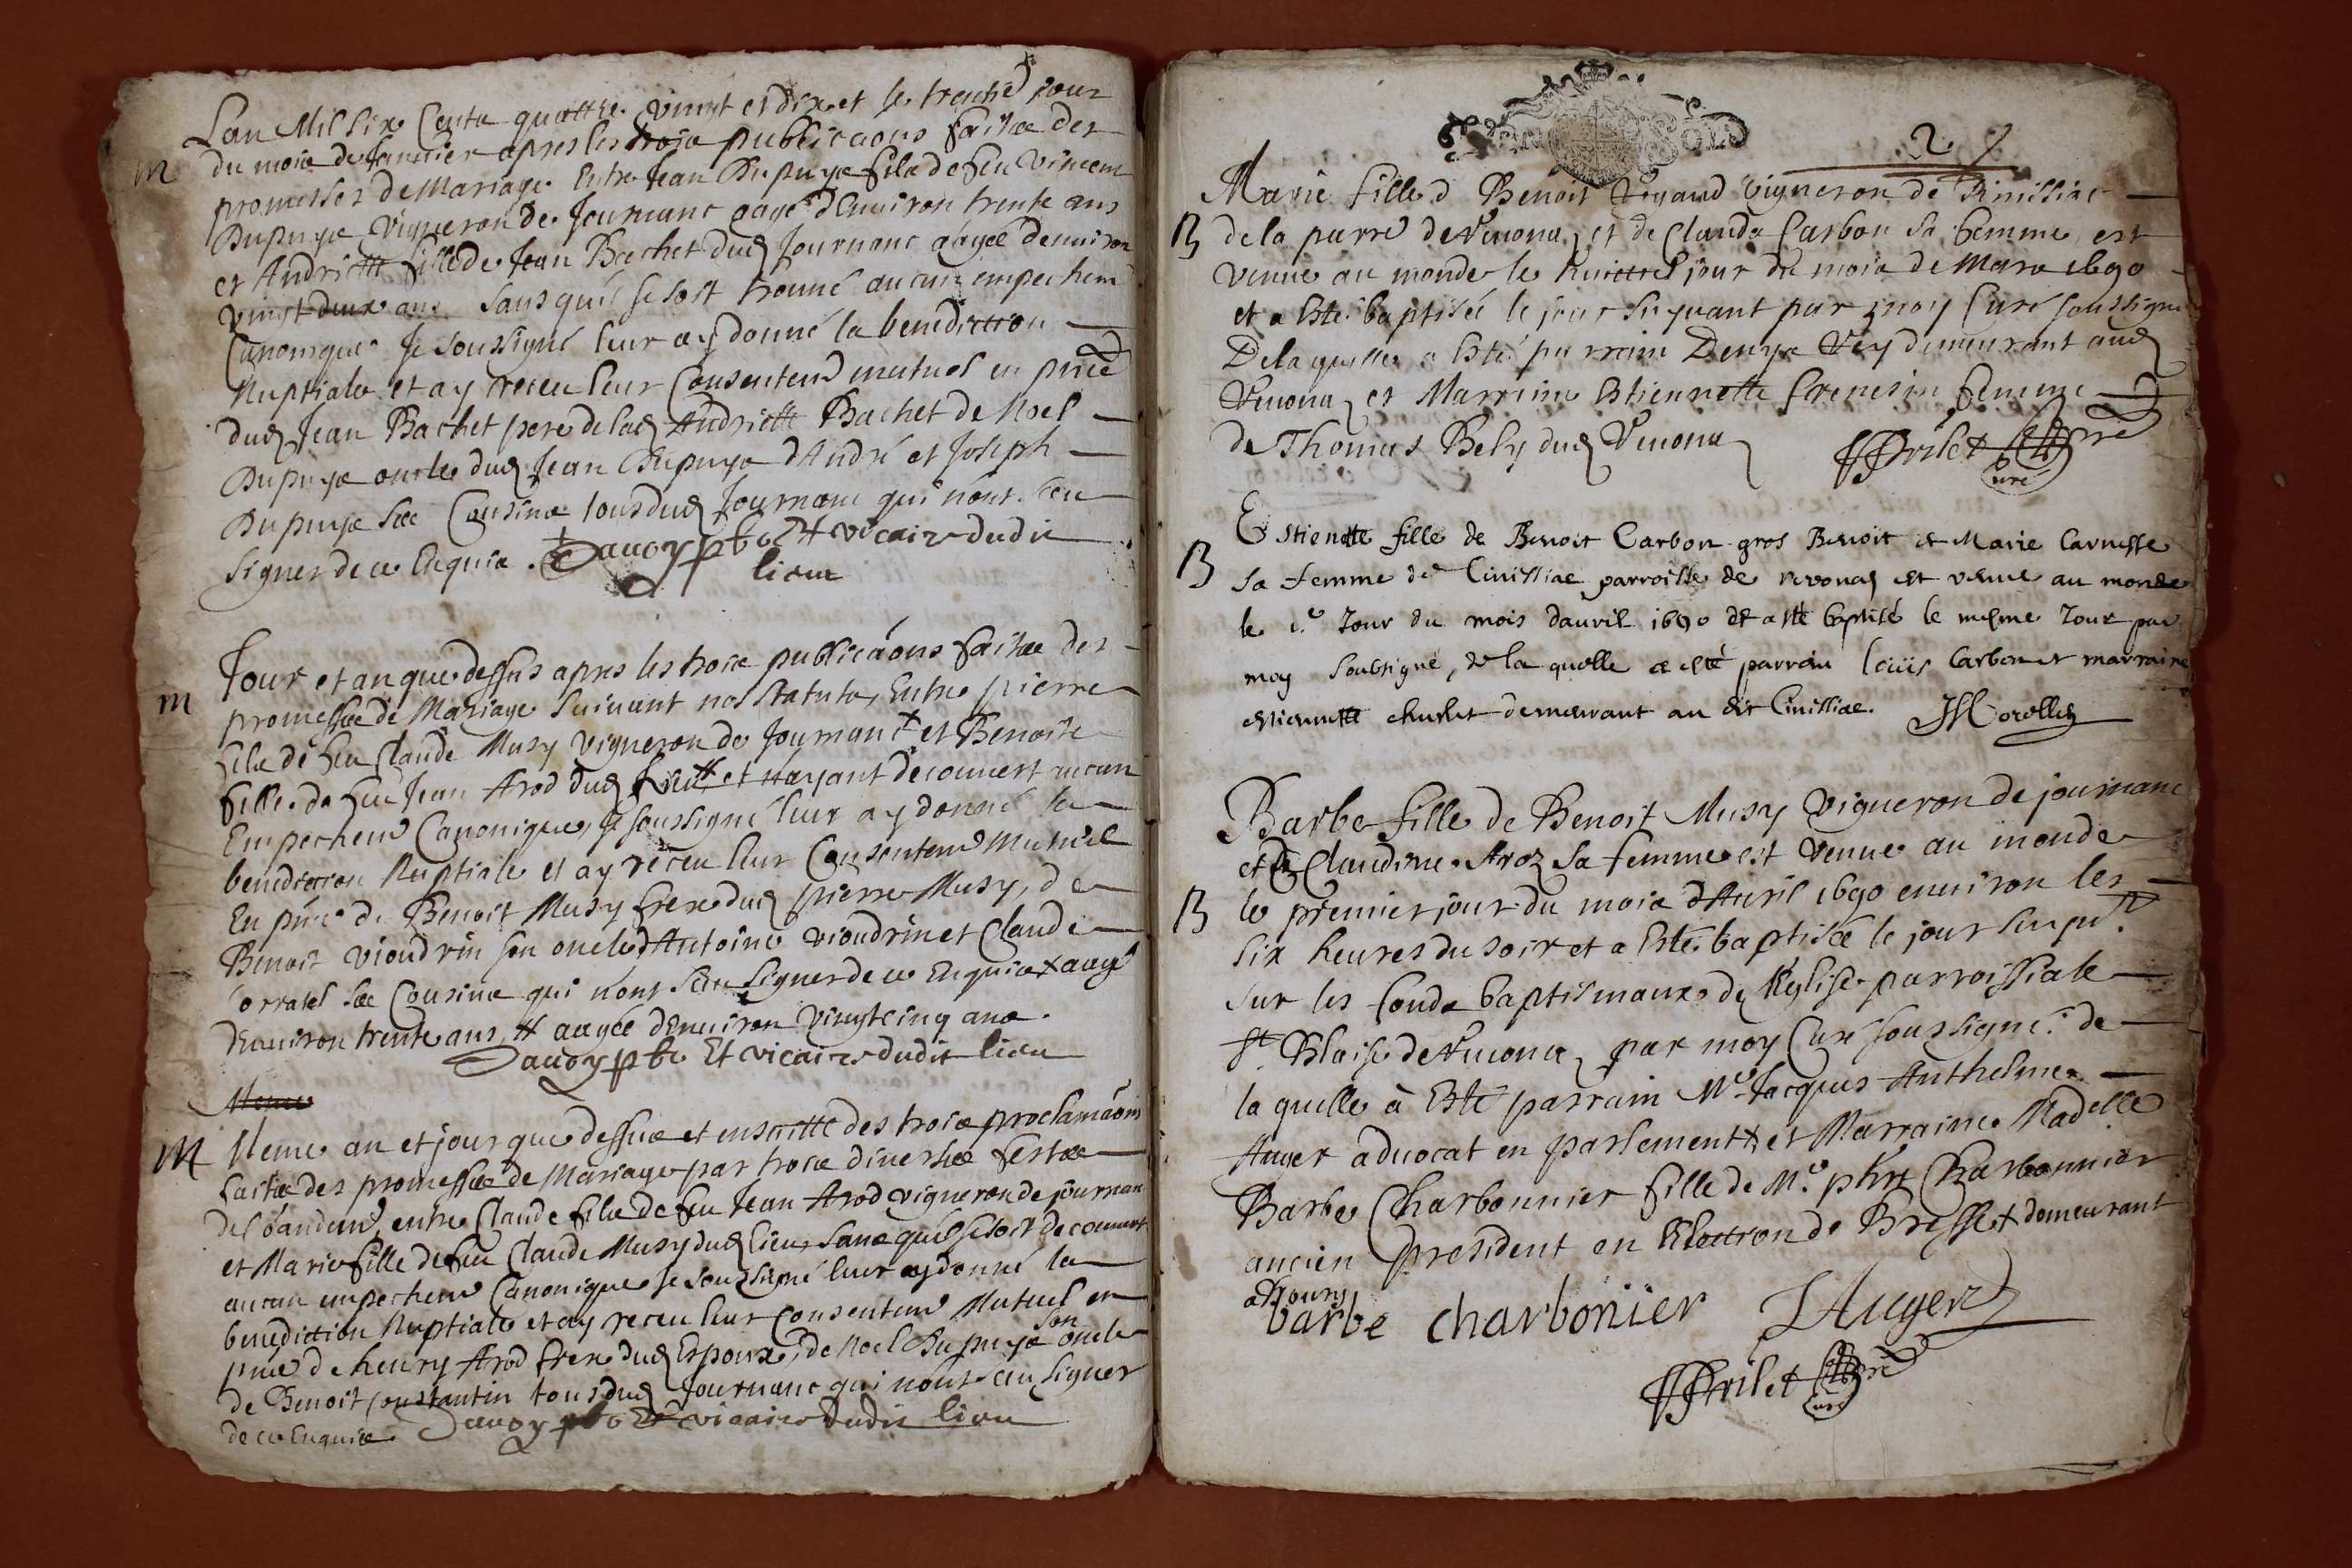 Lan Mil six Cents quattre vingt et dix et le trentie jour
M du mois de Janvier apres les trois publicaons faites des
promesses de Mariage Entre Jean Dupuys fils de feu Vincent
Dupuys Vigneron de Journanc aagé dEnuiron trente ans
et Andriette fille de Jean Bachet dud Journanc aagée denuiron
vingt deux ans sans quil se soit trouué aucun impechem
Canonique Je soussigné leur ay donné la benediction
Nuptiale et ay receu leur Consentem mutuel en pnce
dud Jean Bachet pere de lad Andriette Bachet de Noel
Dupuys oncle dud Jean Dupuys dAndré et Joseph
Dupuys ses Cousins tous dud Journanc qui nont sceu
signer de ce Enquis. Sauoy pbr et vicaire dudit
lieu
Jour et an que dessus apres les trois publicaons faites des
M promesses de Mariage suiuant nos statuts, Entre pierre
fils de feu Claude Musy Vigneron de Journanc et Benoite
fille de feu Jean Arod dud et nayant decouuert aucun
Empechem Canonique, Je soussigné leur ay donné la
benediction Nuptiale et ay receu leur Consentem Mutuel
En pnce de Benoit Musy frere dud pierre Musy, de
Benoit vioudrin son oncle dAntoine vioudrin et Claude
Corratel ses Cousins qui nont sceu signer de ce Enquis aagé
dEnuiron trente ans, # aagée dEnuiron Vingtcinq ans.
Sauoy pbr Et vicaire dudit lieu
Meme
M Meme an et jour que dessus et ensuitte des trois proclamaons
faites des promesses de Mariage par trois diuerses festes
entre Claude fils de feu Jean Arod vigneron de journan
et Marie fille de feu Claude Musy dud lieu sans quil se soit decouuert
aucun impechem Canonique Je soussigné leur ay donné la
benediction Nuptiale et ay receu leur Consentem Mutuel en
pnce de henry Arod frere dud Espoux, de Noel Dupuys son oncle
de Benoit Constantin tous dud Journanc qui nont sceu signer
de ce Enquis Sauoy pbr Et vicaire dudit lieu
2
Marie fille d Benoit vigneron de Sinissiat
B de la parre de Reuona, et de Clauda Carbon sa femme est
venue au monde le huittie jour du mois de Mars 1690
et a Esté baptisée le jour suyuant par moy Curé soussigné
De laquelle a Esté parrain Denys Vey demeurant aud
Reuona et Marraine Estiennette frenesin femme
de Thomas Bely dud Reuona
Frilet pre
curé
Estienette fille de Benoit Carbon gros Benoit et Marie Carnesse
B sa femme de Cinissiac parroisse de revonas est venue au monde
le jour du mois dauril 1690 et a esté baptisé le mesme Jour par
moy soubsigné, de la quelle a esté parrain loüis Carbon et marraine
estiennette demeurant au dit Cinissiac. Morellet
Barbe fille de Benoit Musy vigneron de journanc
et de Claudine Aroz sa femme est venue au monde
B le premier jour du mois dAuril 1690 enuiron les
six heures du soir et a Esté baptisée le jour suyut.
sur les fonds baptismaux de lEglise parroissiale
St Blaise de Reuona, par moy Curé soussigné. de
la quelle à Esté parrain Mre Jacques Anthelme
Auger aduocat en parlement, et Marraine Madelle
Barbe Charbonnier fille de Mre phre Charbonnier
ancien president en Election de Bresse demeurant
a Bourg
barbe charbonier JAuger
Frilet pre
curé